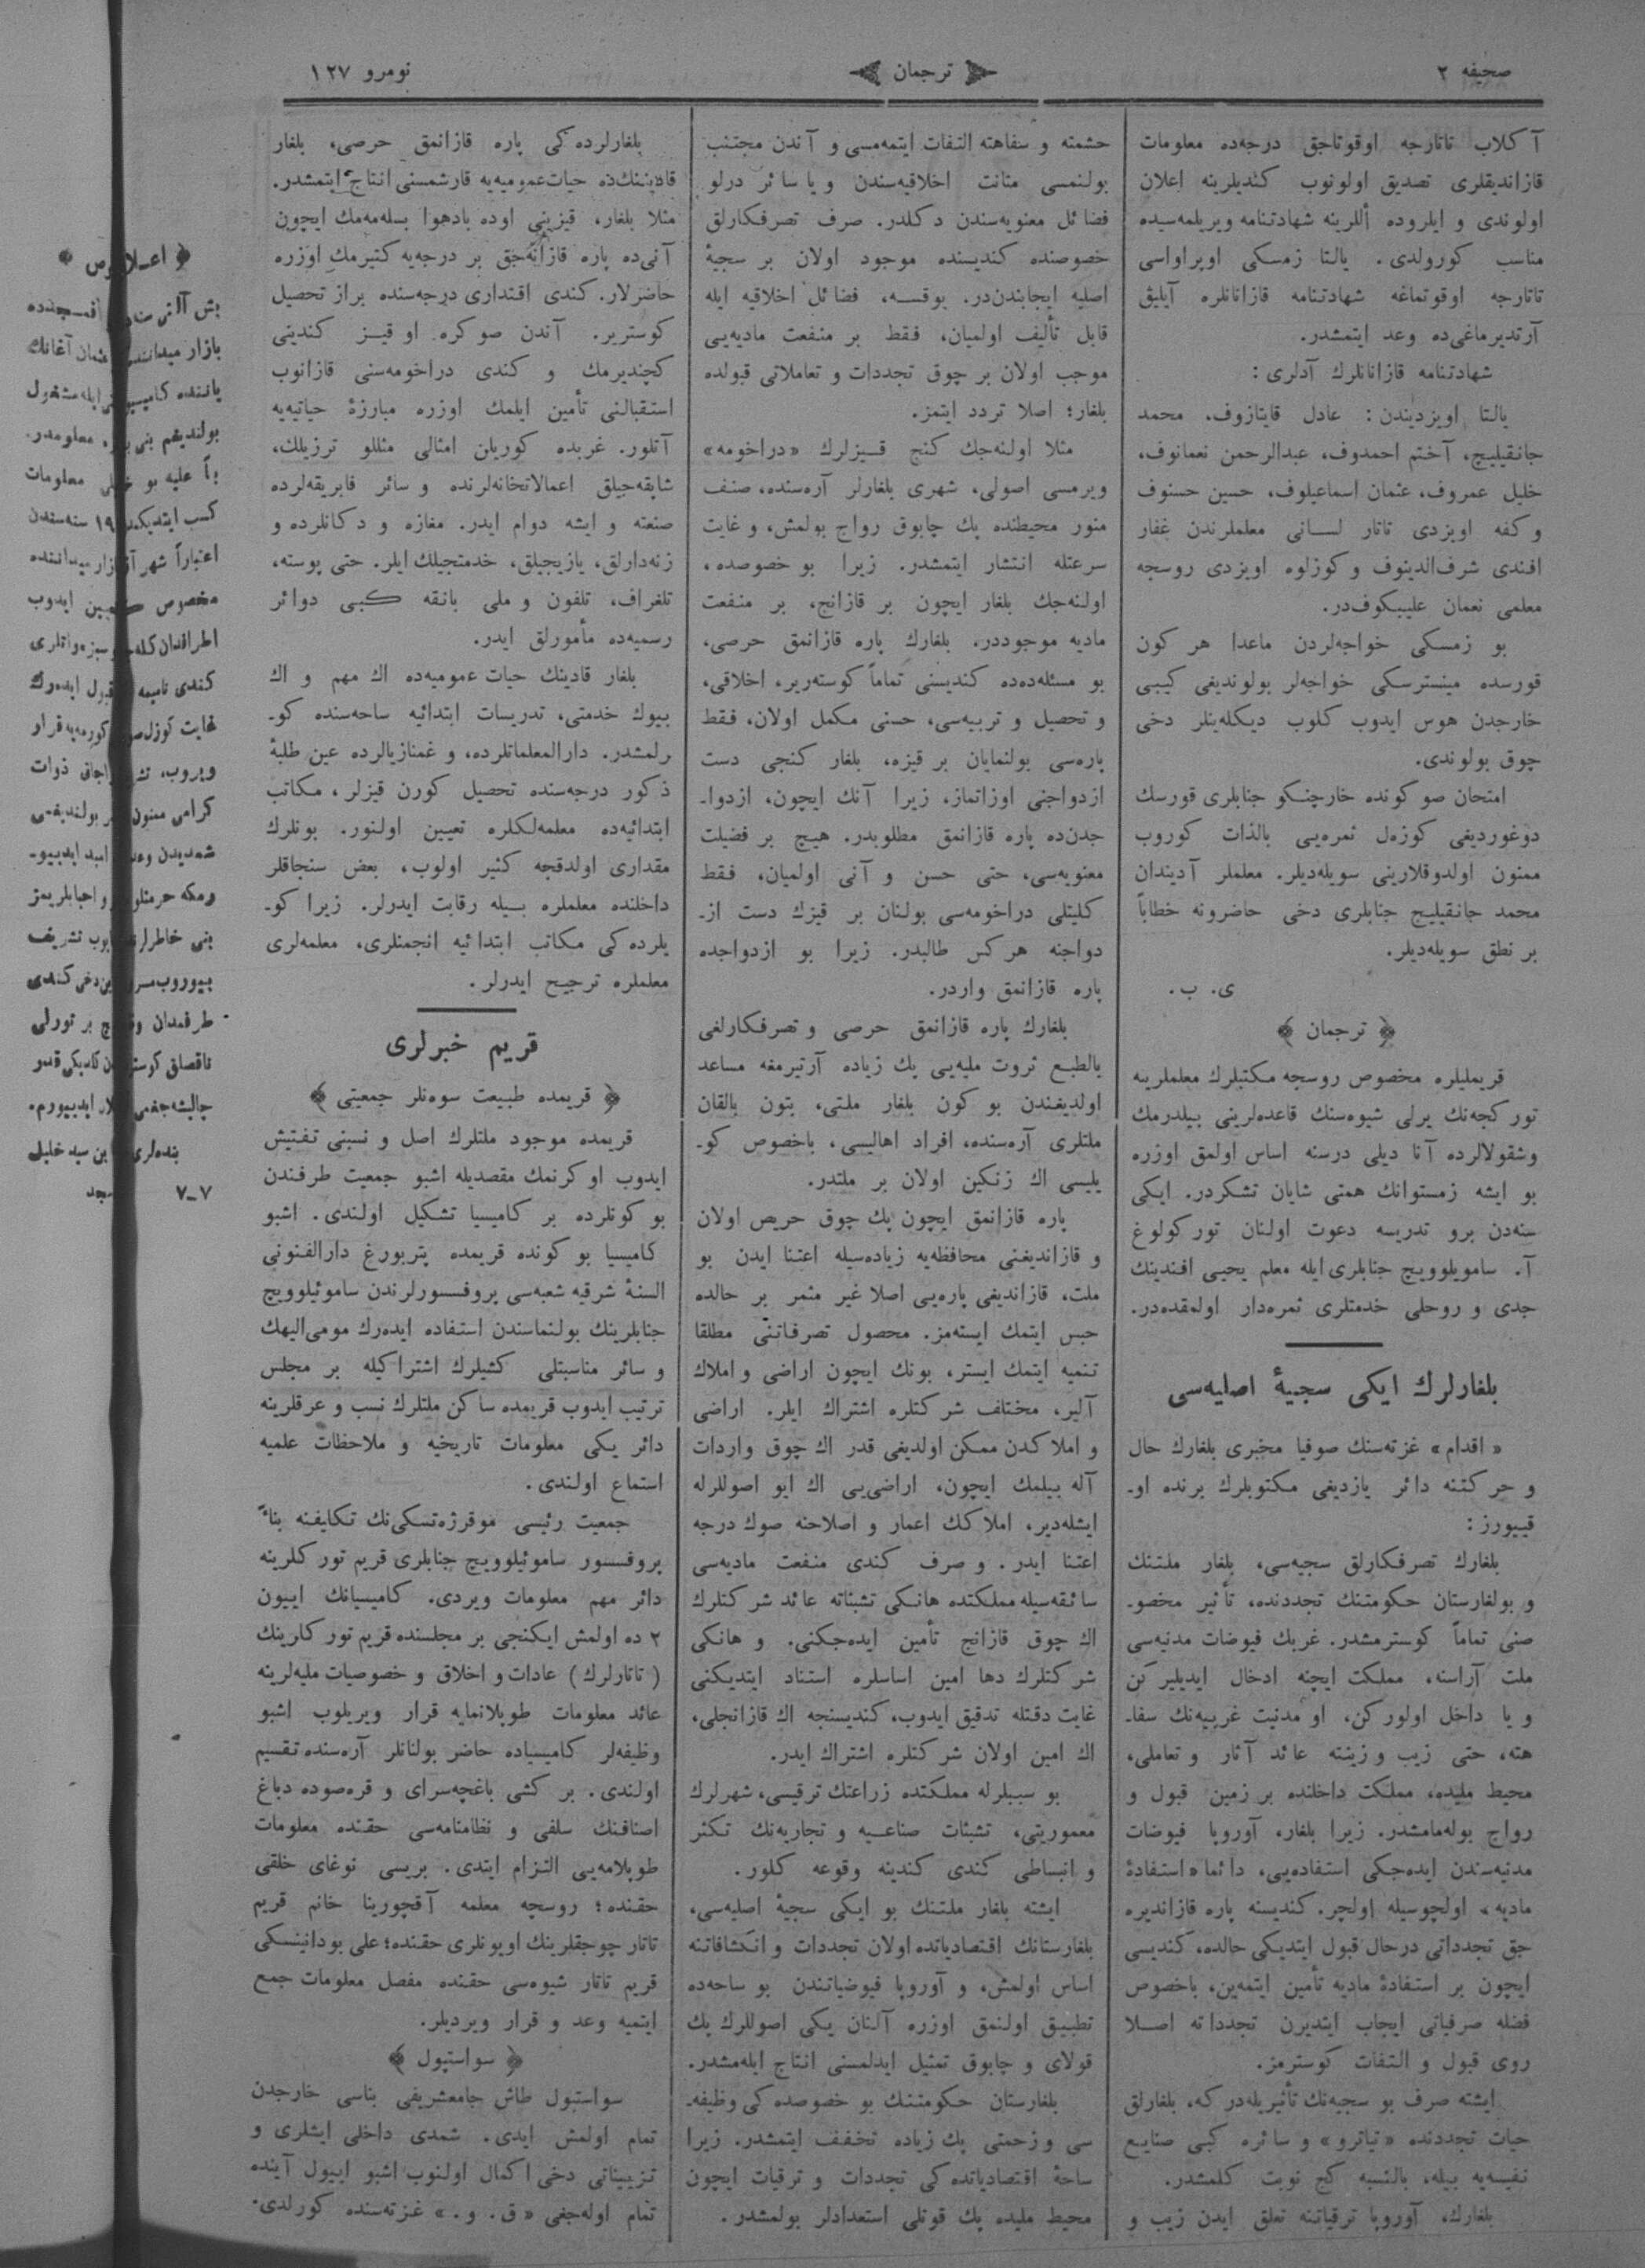 صحیفه ٢
ترجمان
نومرو ١٢٧
آكلاب تاتارجه اوقوتاجق درجه‌ده معلومات
قازاندیقلری تصدیق اولونوب كندیلرینه اعلان
اولوندی و ایلروده أللرینه شهادتنامه ویریلمه‌سیده
مناسب كورولدی. یالتا زمسكی اوپراواسی
تاتارجه اوقوتماغه شهادتنامه قازانانلره آیلیق
آرتدیرماغی‌ده وعد ایتمشدر.
شهادتنامه قازانانلرك آدلری :
یالتا اویزدیندن : عادل قایتازوف، محمد
جانقیلیچ، آختم احمدوف، عبدالرحمن نعمانوف،
خلیل عمروف، عثمان اسماعیلوف، حسین حسنوف
و كفه اویزدی تاتار لسانی معلملرندن غفار
افندی شرف‌الدینوف و كوزلوه اویزدی روسجه
معلمی نعمان علیبكوف‌در.
بو زمسكی خواجه‌لردن ماعدا هر كون
قورسده مینسترسكی خواجه‌لر بولوندیغی كیبی
خارجدن هوس ایدوب كلوب دیكله‌ینلر دخی
چوق بولوندی.
امتحان صو كونده خارچنكو جنابلری قورسك
دوغوردیغی كوزه‌ل ثمره‌یی بالذات كوروب
ممنون اولدوقلارینی سویله‌دیلر. معلملر آدیندان
محمد جانقیلیج جنابلری دخی حاضرونه خطاباً
بر نطق سویله‌دیلر.
ی. ب.
﴿ ترجمان ﴾
قریملیلره مخصوص روسجه مكتبلرك معلملرینه
توركجه‌نك یرلی شیوه‌سنك قاعده‌لرینی بیلدرمك
وشقولالرده آنا دیلی درسنه اساس اولمق اوزره
بو ایشه زمستوانك همتی شایان تشكردر. ایكی
سنه‌دن برو تدریسه دعوت اولنان توركولوغ
آ. سامویلوویچ جنابلری ایله معلم یحیی افندینك
جدی و روحلی خدمتلری ثمره‌دار اولمقده‌در.
بلغارلرك ایكی سجیۀ اصلیه‌سی
« اقدام » غزته‌سنك صوفیا مخبری بلغارك حال
و حركتنه دائر یازدیغی مكتوبلرك برنده او-
قییورز :
بلغارك تصرفكارلق سجیه‌سی، بلغار ملتنك
و بولغارستان حكومتنك تجددنده، تأثیر مخصو-
صنی تماماً كوسترمشدر. غربك فیوضات مدنیه‌سی
ملت آراسنه، مملكت ایچنه ادخال ایدیلیركن
و یا داخل اولوركن، او مدنیت غربیه‌نك سفا-
هته، حتی زیب و زینته عائد آثار و تعاملی،
محیط ملیده، مملكت داخلنده بر زمین قبول و
رواج بوله‌مامشدر. زیرا بلغار، آوروپا فیوضات
مدنیه‌سندن ایده‌جكی استفاده‌یی، دائما «استفادۀ
مادیه» اولچوسیله اولچر. كندیسنه پاره قازاندیره
جق تجدداتی درحال قبول ایتدیكی حالده، كندیسی
ایچون بر استفادۀ مادیه تأمین ایتمه‌ین، باخصوص
فضله صرفیاتی ایجاب ایتدیرن تجدداته اصلا
روی قبول و التفات كوسترمز.
ایشته صرف بو سجیه‌نك تأثیریله‌در كه، بلغارلق
حیات تجددنده «تیاترو» و سائره كبی صنایع
نفیسه‌یه بیله، بالنسبه كج نوبت كلمشدر.
بلغارك، آوروپا ترقیاتنه تعلق ایدن زیب و
حشمته و سفاهته التفات ایتمه‌مسی و آندن مجتنب
بولنمسی متانت اخلاقیه‌سندن ویا سائر درلو
فضائل معنویه‌سندن دكلدر. صرف تصرفكارلق
خصوصنده كندیسنده موجود اولان بر سجیۀ
اصلیه ایجابندن‌در. بوقسه، فضائل اخلاقیه ایله
قابل تألیف اولمیان، فقط بر منفعت مادیه‌یی
موجب اولان بر چوق تجددات و تعاملاتی قبولده
بلغار؛ اصلا تردد ایتمز.
مثلا اولنه‌جك كنج قیزلرك «دراخومه»
ویرمسی اصولی، شهری بلغارلر آره‌سنده، صنف
منور محیطنده پك چابوق رواج بولمش، و غایت
سرعتله انتشار ایتمشدر. زیرا بو خصوصده،
اولنه‌جك بلغار ایچون بر قازانج، بر منفعت
مادیه موجوددر. بلغارك پاره قازانمق حرصی،
بو مسئله‌ده‌ده كندیسنی تماماً كوسته‌ریر، اخلاقی،
و تحصیل و تربیه‌سی، حسنی مكمل اولان، فقط
پاره‌سی بولنمایان بر قیزه، بلغار كنجی دست
ازدواجنی اوزاتماز، زیرا آنك ایچون، ازدوا-
جدن‌ده پاره قازانمق مطلوبدر. هیچ بر فضیلت
معنویه‌سی، حتی حسن و آنی اولمیان، فقط
كلیتلی دراخومه‌سی بولنان بر قیزك دست از-
دواجنه هركس طالبدر. زیرا بو ازدواجده
پاره قازانمق واردر.
بلغارك پاره قازانمق حرصی و تصرفكارلغی
بالطبع ثروت ملیه‌یی پك زیاده آرتیرمغه مساعد
اولدیغندن بو كون بلغار ملتی، بتون بالقان
ملتلری آره‌سنده، افراد اهالیسی، باخصوص كو-
یلیسی اك زنكین اولان بر ملتدر.
پاره قازانمق ایچون پك چوق حریص اولان
و قازاندیغنی محافظه‌یه زیاده‌سیله اعتنا ایدن بو
ملت، قازاندیغی پاره‌یی اصلا غیر مثمر بر حالده
حبس ایتمك ایسته‌مز. محصول تصرفاتنی مطلقا
تنمیه ایتمك ایستر، بونك ایچون اراضی و املاك
آلیر، مختلف شركتلره اشتراك ایلر. اراضی
و املاكدن ممكن اولدیغی قدر اك چوق واردات
آله بیلمك ایچون، اراضی‌یی اك ایو اصوللرله
ایشله‌دیر، املاكك اعمار و اصلاحنه صوك درجه
اعتنا ایدر. و صرف كندی منفعت مادیه‌سی
سائقه‌سیله مملكتده هانكی تشبثاته عائد شركتلرك
اك چوق قازانج تأمین ایده‌جكنی. و هانكی
شركتلرك دها امین اساسلره استناد ایتدیكنی
غایت دقتله تدقیق ایدوب، كندیسنجه اك قازانجلی،
اك امین اولان شركتلره اشتراك ایدر.
بو سببلرله مملكتده زراعتك ترقیسی، شهرلرك
معموریتی، تشبثات صناعیه و تجاریه‌نك تكثر
و انبساطی كندی كندینه وقوعه كلور.
ایشته بلغار ملتنك بو ایكی سجیۀ اصلیه‌سی،
بلغارستانك اقتصادیاتده اولان تجددات و انكشافاتنه
اساس اولمش، و آوروپا فیوضیاتندن بو ساحه‌ده
تطبیق اولنمق اوزره آلنان یكی اصوللرك پك
قولای و چابوق تمثیل ایدلمسنی انتاج ایله‌مشدر.
بلغارستان حكومتنك بو خصوصده كی وظیفه-
سی و زحمتی پك زیاده تخفف ایتمشدر. زیرا
ساحۀ اقتصادیاتده كی تجددات و ترقیات ایچون
محیط ملیده پك قوتلی استعدادلر بولمشدر.
بلغارلرده كی پاره قازانمق حرصی، بلغار
قادیننك‌ده حیات عمومیه‌یه قارشمسنی انتاج ایتمشدر.
مثلا بلغار، قیزینی اوده بادهوا بسله‌مه‌مك ایچون
آنی‌ده پاره قازانه‌جق بر درجه‌یه كتیرمك اوزره
حاضرلار. كندی اقتداری درجه‌سنده براز تحصیل
كوستریر. آندن صوكره او قیز كندینی
كچندیرمك و كندی دراخومه‌سنی قازانوب
استقبالنی تأمین ایلمك اوزره مبارزۀ حیاتیه‌یه
آتلور. غربده كوریلن امثالی مثللو ترزیلك،
شابقه‌جیلق اعمالاتخانه‌لرنده و سائر فابریقه‌لرده
صنعته و ایشه دوام ایدر. مغازه و دكانلرده و
زنه‌دارلق، یازیجیلق، خدمتجیلك ایلر. حتی پوسته،
تلغراف، تلفون و ملی بانقه كبی دوائر
رسمیه‌ده مأمورلق ایدر.
بلغار قادینك حیات عمومیه‌ده اك مهم و اك
بیوك خدمتی، تدریسات ابتدائیه ساحه‌سنده كو-
رلمشدر. دارالمعلماتلرده، و غمنازیالرده عین طلبۀ
ذكور درجه‌سنده تحصیل كورن قیزلر، مكاتب
ابتدائیه‌ده معلمه‌لكلره تعیین اولنور. بونلرك
مقداری اولدقجه كثیر اولوب، بعض سنجاقلر
داخلنده معلملره بیله رقابت ایدرلر. زیرا كو-
یلرده كی مكاتب ابتدائیه انجمنلری، معلمه‌لری
معلملره ترجیح ایدرلر.
قریم خبرلری
﴿ قریمده طبیعت سوه‌نلر جمعیتی ﴾
قریمده موجود ملتلرك اصل و نسبنی تفتیش
ایدوب اوكرنمك مقصدیله اشبو جمعیت طرفندن
بو كونلرده بر كامیسیا تشكیل اولندی. اشبو
كامیسیا بو كونده قریمده پتربورغ دارالفنونی
السنۀ شرقیه شعبه‌سی پروفسسورلرندن ساموئیلوویچ
جنابلرینك بولنماسندن استفاده ایده‌رك مومی‌الیهك
و سائر مناسبتلی كشیلرك اشتراكیله بر مجلس
ترتیب ایدوب قریمده ساكن ملتلرك نسب و عرقلرینه
دائر یكی معلومات تاریخیه و ملاحظات علمیه
استماع اولندی.
جمعیت رئیسی موقرژه‌تسكی‌نك تكلیفنه بناءً
پروفسسور ساموئیلوویچ جنابلری قریم توركلرینه
دائر مهم معلومات ویردی. كامیسیانك اییون
٢ ده اولمش ایكنجی بر مجلسنده قریم توركلرینك
( تاتارلرك ) عادات و اخلاق و خصوصیات ملیه‌لرینه
عائد معلومات طوپلانمایه قرار ویریلوب اشبو
وظیفه‌لر كامیسیاده حاضر بولنانلر آره‌سنده تقسیم
اولندی. بر كشی باغچه‌سرای و قره‌صوده دباغ
اصنافنك سلفی و نظامنامه‌سی حقنده معلومات
طوپلامه‌یی التزام ایتدی. بریسی نوغای خلقی
حقنده؛ روسجه معلمه آقچورینا خانم قریم
تاتار چوجقلرینك اویونلری حقنده؛ علی بودانینسكی
قریم تاتار شیوه‌سی حقنده مفصل معلومات جمع
ایتمیه وعد و قرار ویردیلر.
﴿ سواستپول ﴾
سواستپول طاش جامعشریفی بناسی خارجدن
تمام اولمش ایدی. شمدی داخلی ایشلری و
تزییناتی دخی اكمال اولنوب اشبو اییول آینده
تمام اوله‌جغی «ق. و.» غزته‌سنده كورلدی.
بازار میداننده
عثمان آغانك
یاننده
ایله مشغول
معلومدر.
معلومات
سنه‌سندن
اعتباراً شهر
مخصوص
ایدوب
كندی
قبول ایده‌رك
غایت كوزل
ویروب،
ذوات
كرامی ممنون
تشریف
دخی كندی
طرفمدان
بر تورلی
ایدییورم.
بنده‌لری
بن سید خلیل
٧-٧